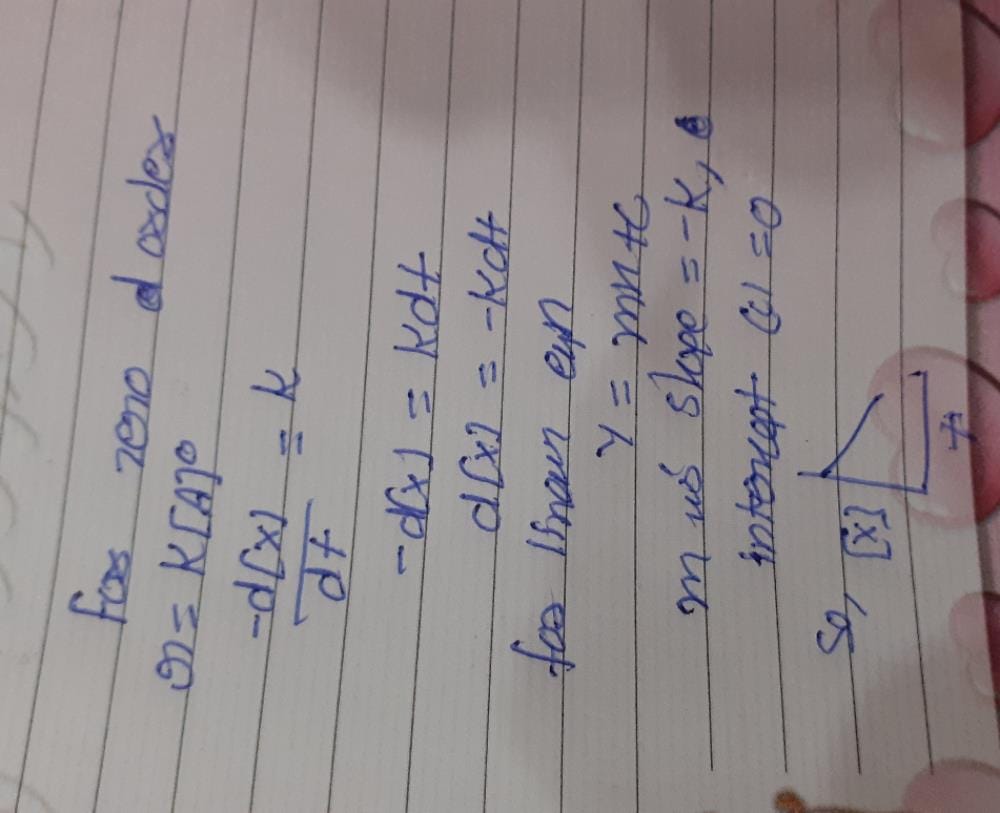 for zero order
r = K[A]⁰
-d[x]/dt = K
-d[x] = Kdt
d[x] = -Kdt
for linear eqn
y = mx+c
m is slope = -K,
intercept (c) = 0
So,
[x]
t